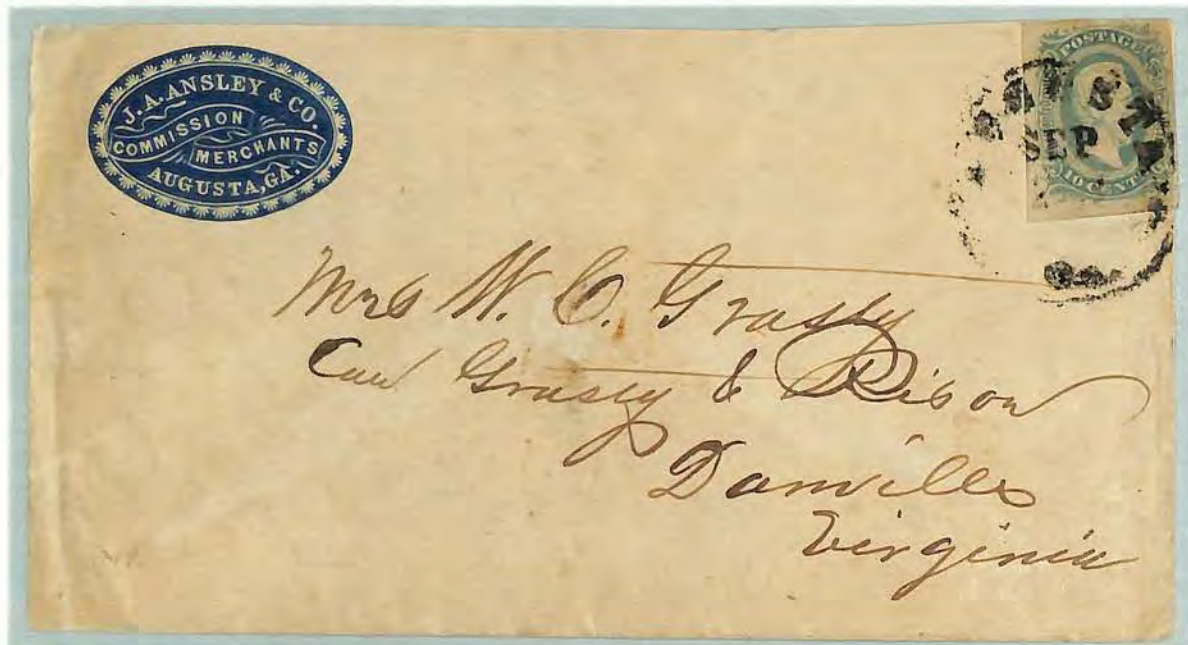 J. A. ANSLEY & CO.
COMMISSION
MERCHANTS
AUGUSTA, GA.
POSTAGE
SEP
10 CENTS
Mrs W. C. Grasty
Care Grasty & Rison
Danville
Virginia